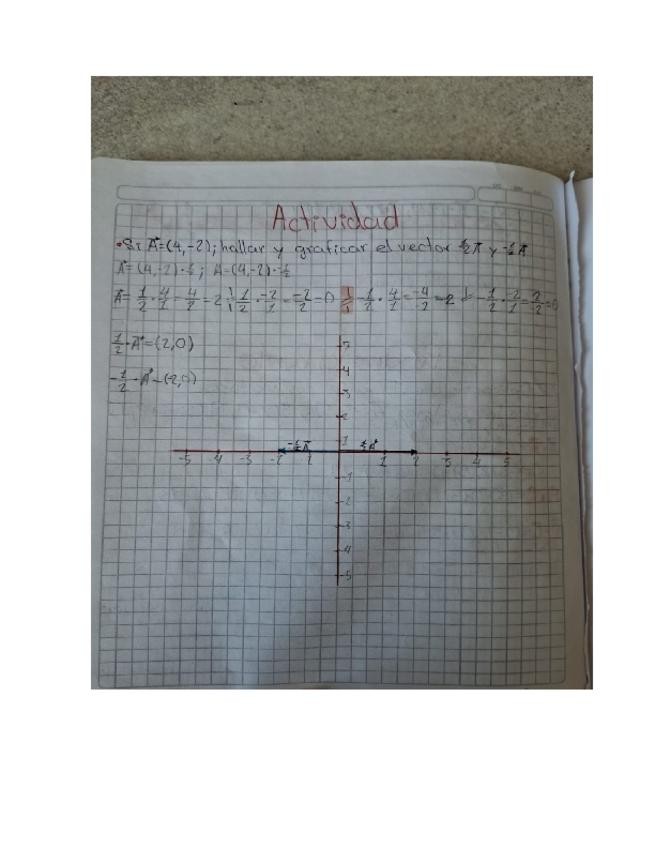 Actividad
•Si A⃗=(4,-2); hallar y graficar el vector ½A⃗ y -½A⃗
A⃗=(4,-2)·½; A=(4,-2)·-½
A⃗= 1/2 · 4/1 = 4/2 = 2 ; 1/2 · -2/1 = -2/2 = 0 -1/2 · 4/1 = -4/2 = -2 -1/2 · -2/1 = 2/2 = 0
1/2·A⃗=(2,0)
-1/2·A⃗=(-2,0)
5
4
3
2
1
-½A⃗ ½A⃗
-5 -4 -3 -2 -1 1 2 3 4 5
-1
-2
-3
-4
-5